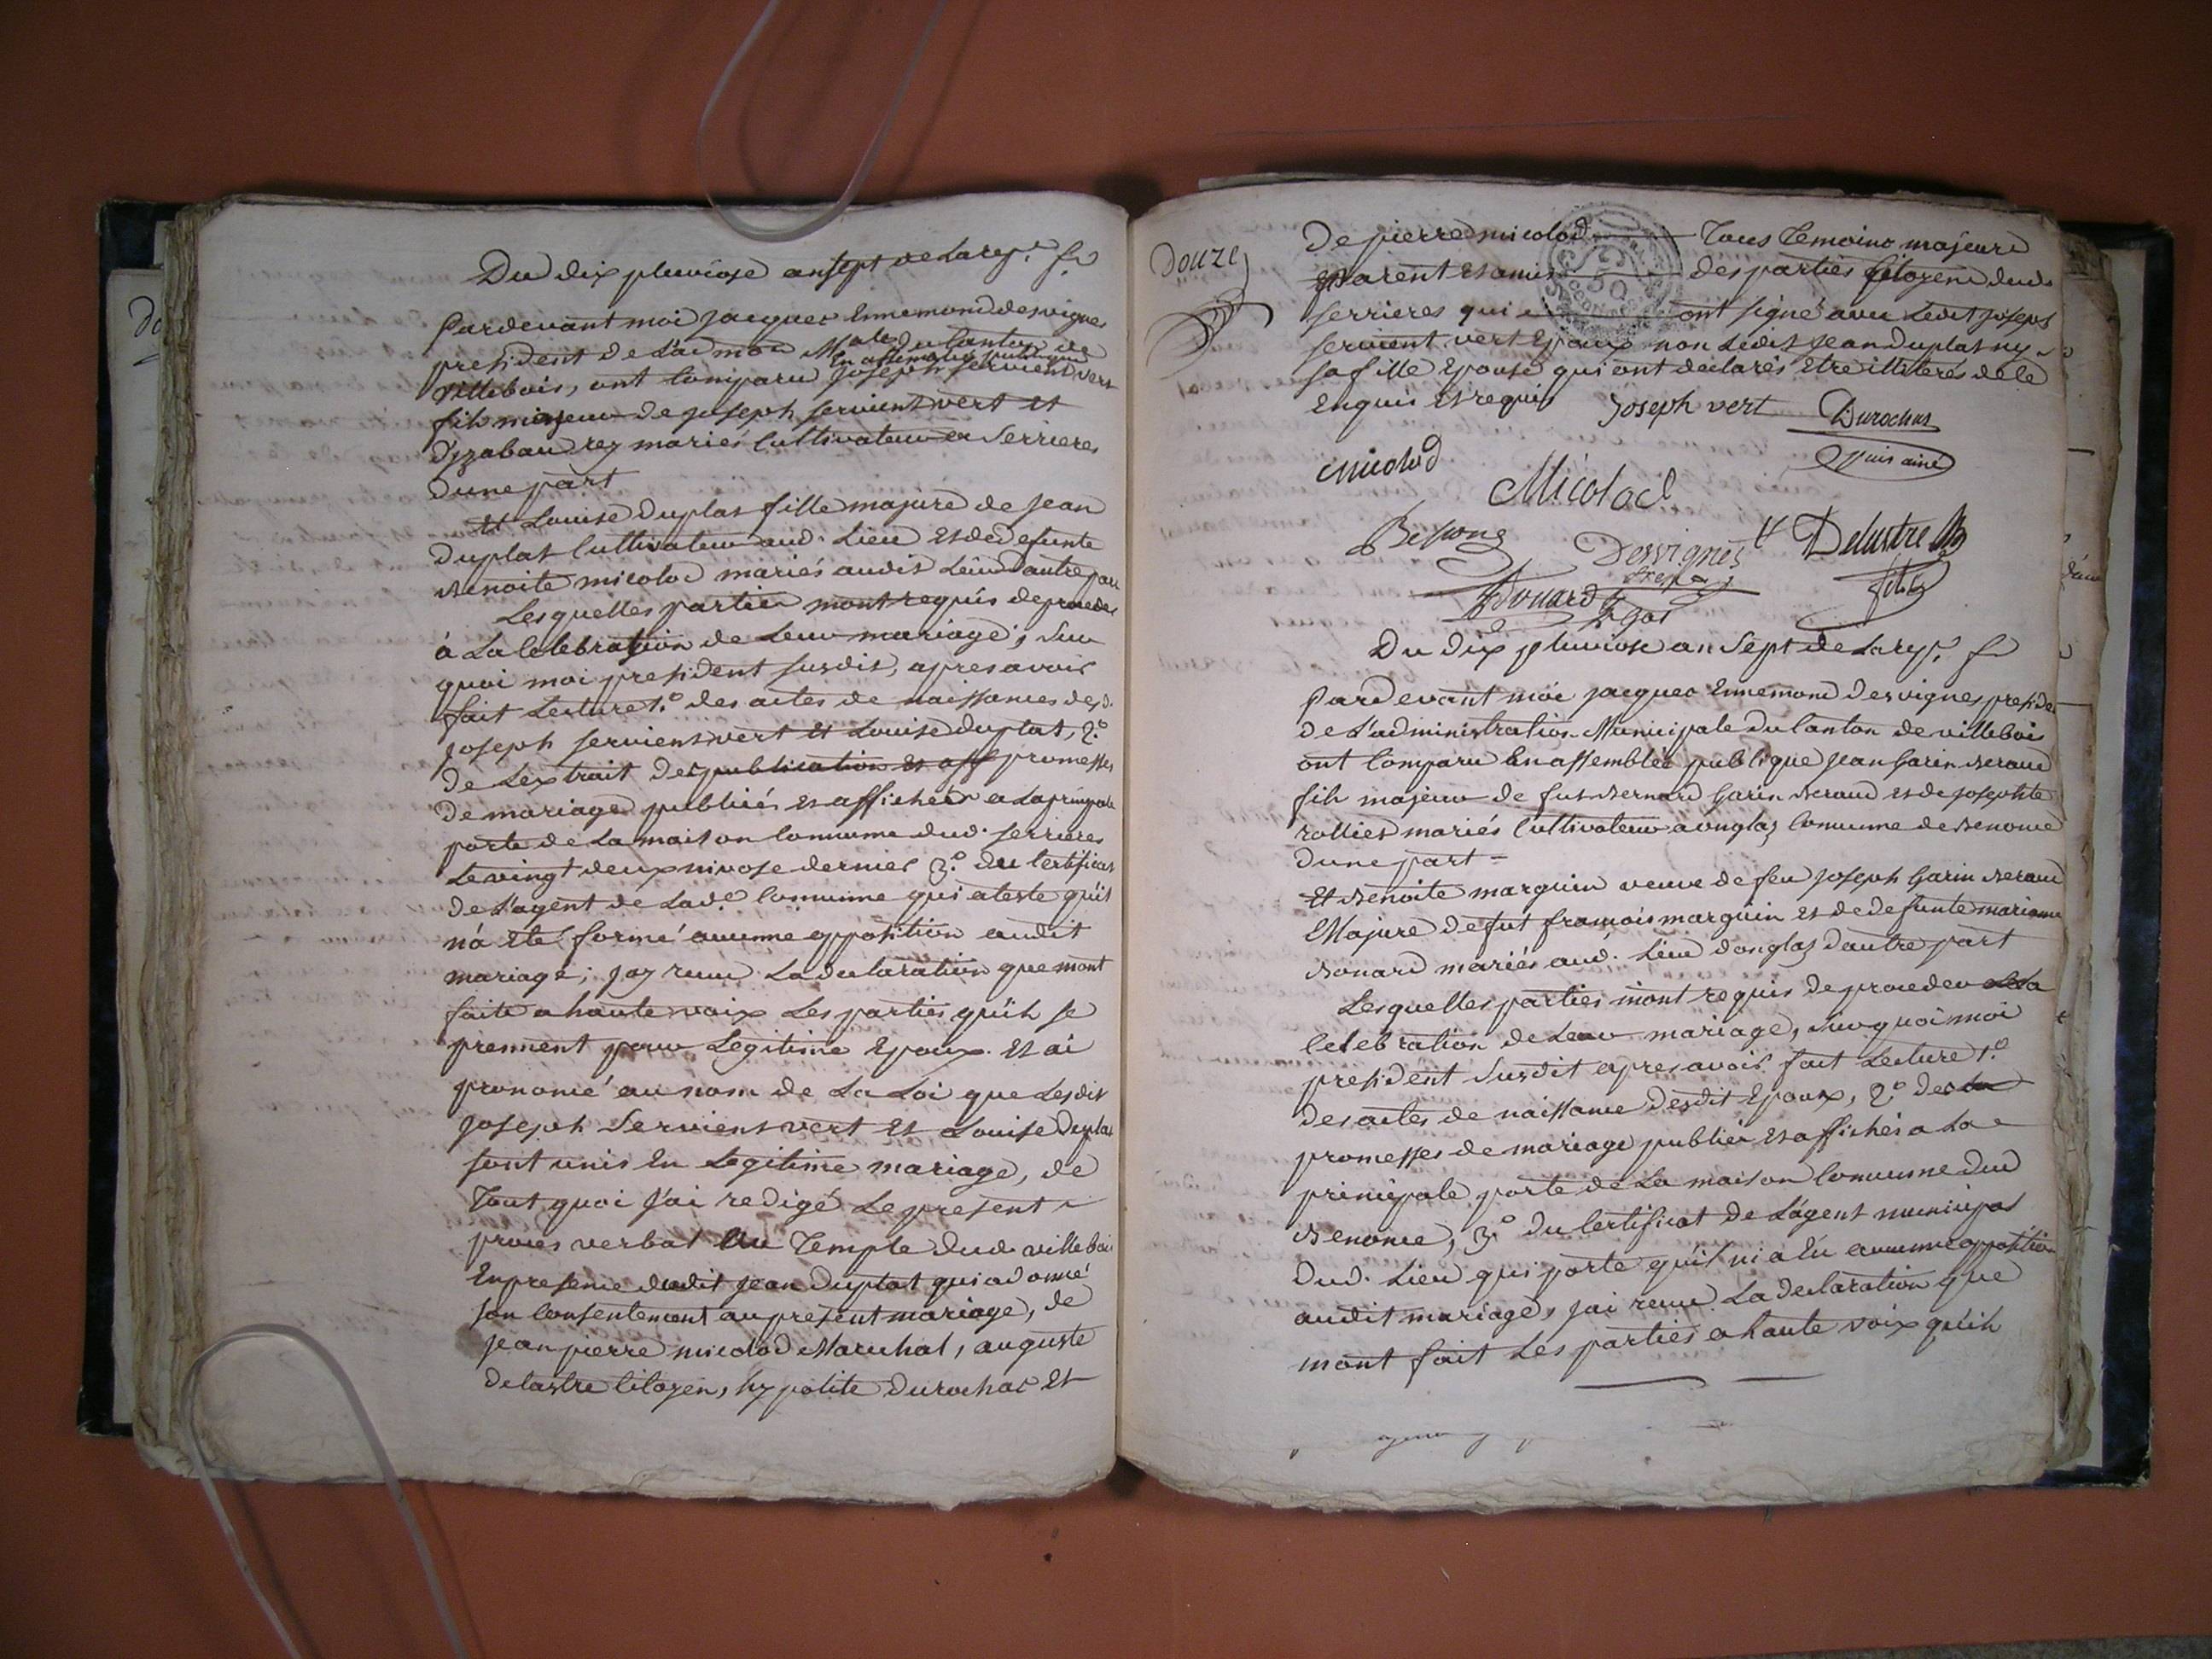 Du dix pluviose an sept de La rep.e fr
Pardevant moi jacques Ennemond desvignes
president de L'ad mon M.ale du Canton de
En assemblée publique
villebois, ont Comparu joseph servient vert
fils majeur de joseph servient vert et
d'yzabau rey mariés Cultivateur a Serrieres
dune part
Et Louise duplat fille majure de jean
duplat Cultivateur aud. Lieu et de defunte
Benoite micolod mariés audit Lieu d'autre part
Lesquelles parties mont requis de proceder
à La Celebration de Leur mariage, Sur
quoi moi president susdit, apres avoir
fait Lecture 1.o des actes de naissances desd.
joseph servient vert et Louise duplat, 2.o
de Lextrait des publication et aff promesses
de mariage publiés et affichés a La principale
porte de La maison Commune dud. serrieres
Le vingt deux nivose dernier 3.o du Certificat
de L'agent de Lad.e Commune qui ateste qu'il
n'a été formé aucunne opposition audit
mariage; jay recu La declaration que mont
faite a haute voix Les parties qu'ils se
prennent pour Legitime Epoux. Et ai
prononcé au nom de La Loi que Lesdit
joseph Servient vert et Louise Duplat
sont unis En Legitime mariage, de
Tout quoi j'ai redigé Le present
proces verbal Au Temple dud. villebois
En presence dudit jean Duplat qui a donné
son Consentement au present mariage, de
jean pierre micolod Marechal, auguste
delastre Citoyen, hypolite Durochat et
Douze
De pierre micolod Tous Temoins majeurs
parent et amis des parties Citoyens dud.
serrieres qui ont signé avec Ledit joseph
servient vert Epoux non Ledit jean duplat ny
sa fille Epouse qui ont declarés Etre illiterés de ce
Enquis et requis
joseph vert
Durochat
Puis ainé
micolod
Micolod
Bessong
Desvignes
Delastre
fils
Bonard
Du dix pluviose an Sept de La rep.e fr
Pardevant moi jacques Ennemond desvignes preside
de L'administration Municipale du Canton de villebois
ont Comparu En assemblée publique jean Garin Beraud
fils majeur de fut Bernard Garin Beraud et de josephte
rollier mariés Cultivateur a onglas Commune de Benonce
dune part =
Et Benoite marguin veuve de feu joseph Garin Beraud
Majure de fut francois marguin et de defunte marianne
Bonard mariés aud. Lieu donglas d'autre part
Lesquelles parties mont requis de proceder a La
Celebration de Leur mariage, Sur quoi moi
president Susdit apres avoir fait Lecture 1.o
des actes de naissance desdit Epoux, 2.o des La
promesses de mariage publiés et affichés a La
principale porte de La maison Commune dud
Benonce, 3.o du Certificat de L'agent municipal
dud. Lieu qui porte qu'il ni a Eu aucunne opposition
audit mariage, jai recu La declaration que
mont fait Les parties a haute voix qu'ils